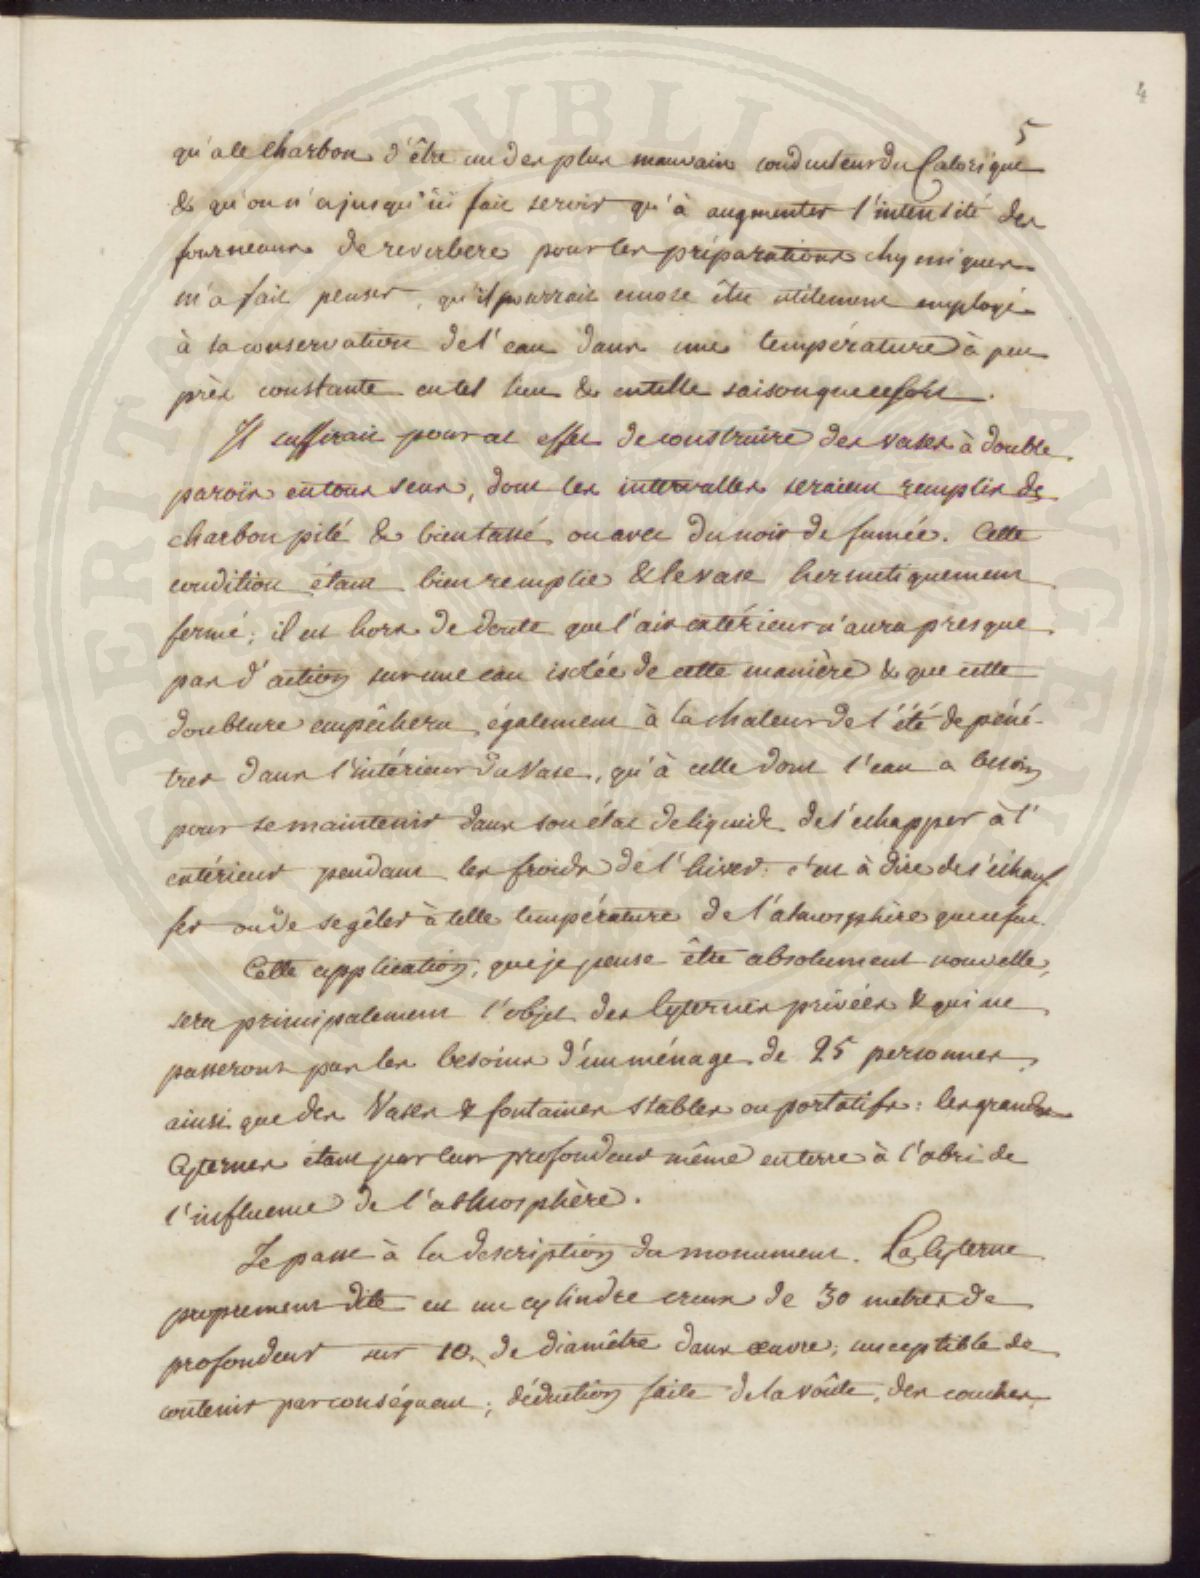 4
5
qu'a le Charbon d'être un des plus mauvais conducteurs du Calorique
& qu'on n'a jusqu'ici fait servir qu'à augmenter l'intensité des
fourneaux de reverbere pour les préparations chymiques
m'a fait penser, qu'il pourrait encore être utilement employé
à la conservation de l'eau dans une température à peu
près constante en tel lieu & en telle saison que ce soit.
Il suffirait pour cet effet de construire des vases à double
paroïs en tous sens, dont les intervalles seraient remplis de
charbon pilé & bien tassé ou avec du noir de fumée. Cette
condition étant bien remplie & le vase hermetiquement
fermé; il est hors de doute que l'air extérieur n'aura presque
pas d'action sur une eau isolée de cette manière & que cette
doublure empêchera également à la chaleur de l'été de péné-
trer dans l'intérieur du Vase, qu'à celle dont l'eau a besoin
pour se maintenir dans son état de liquide de s'échapper à l'
extérieur pendant les froids de l'hiver: c'est à dire de s'échauf-
fer ou de se gêler à telle température de l'atmosphère que ce fut.
Cette application, que je pense être absolument nouvelle,
sera principalement l'objet des Cyternes privées & qui ne
passeront pas les besoins d'un ménage de 25 personnes,
ainsi que des Vases & fontaines stables ou portatifs: les grandes
Cyternes étant par leur profondeur même en terre à l'abri de
l'influence de l'athmosphère.
Je passe à la description du monument. La Cyterne
proprement dite est un cylindre creux de 30 metres de
profondeur sur 10. de diamêtre dans œuvre; susceptible de
contenir par conséquent; déduction faite de la voûte, des couches
SPERITA PUBLICI AVGEN